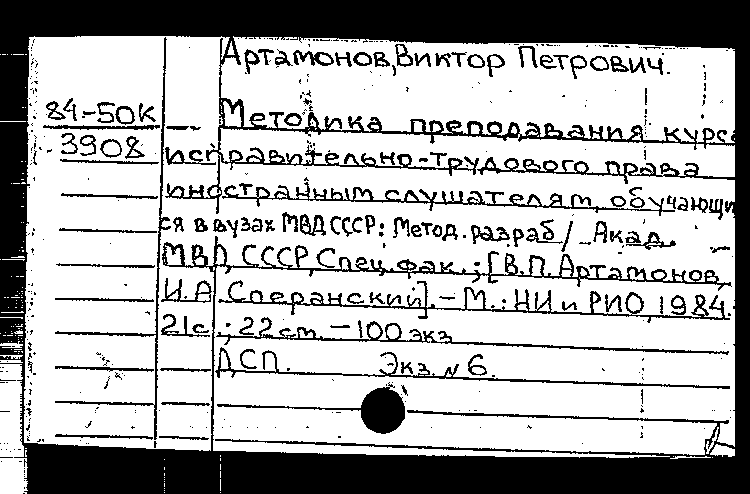 Артамонов, Виктор Петрович.
84-50К
3908
Методика преподавания курса
исправительно-трудового права
иностранным слушателям, обучающи
ся в вузах МВД СССР: Метод. разраб / Акад.
МВД СССР, Спец. фак.; [В.П. Артамонов,
И.А. Сперанский]. - М.: НИ и РИО, 1984.
21с.; 22 см. - 100 экз
ДСП. Экз. N 6.